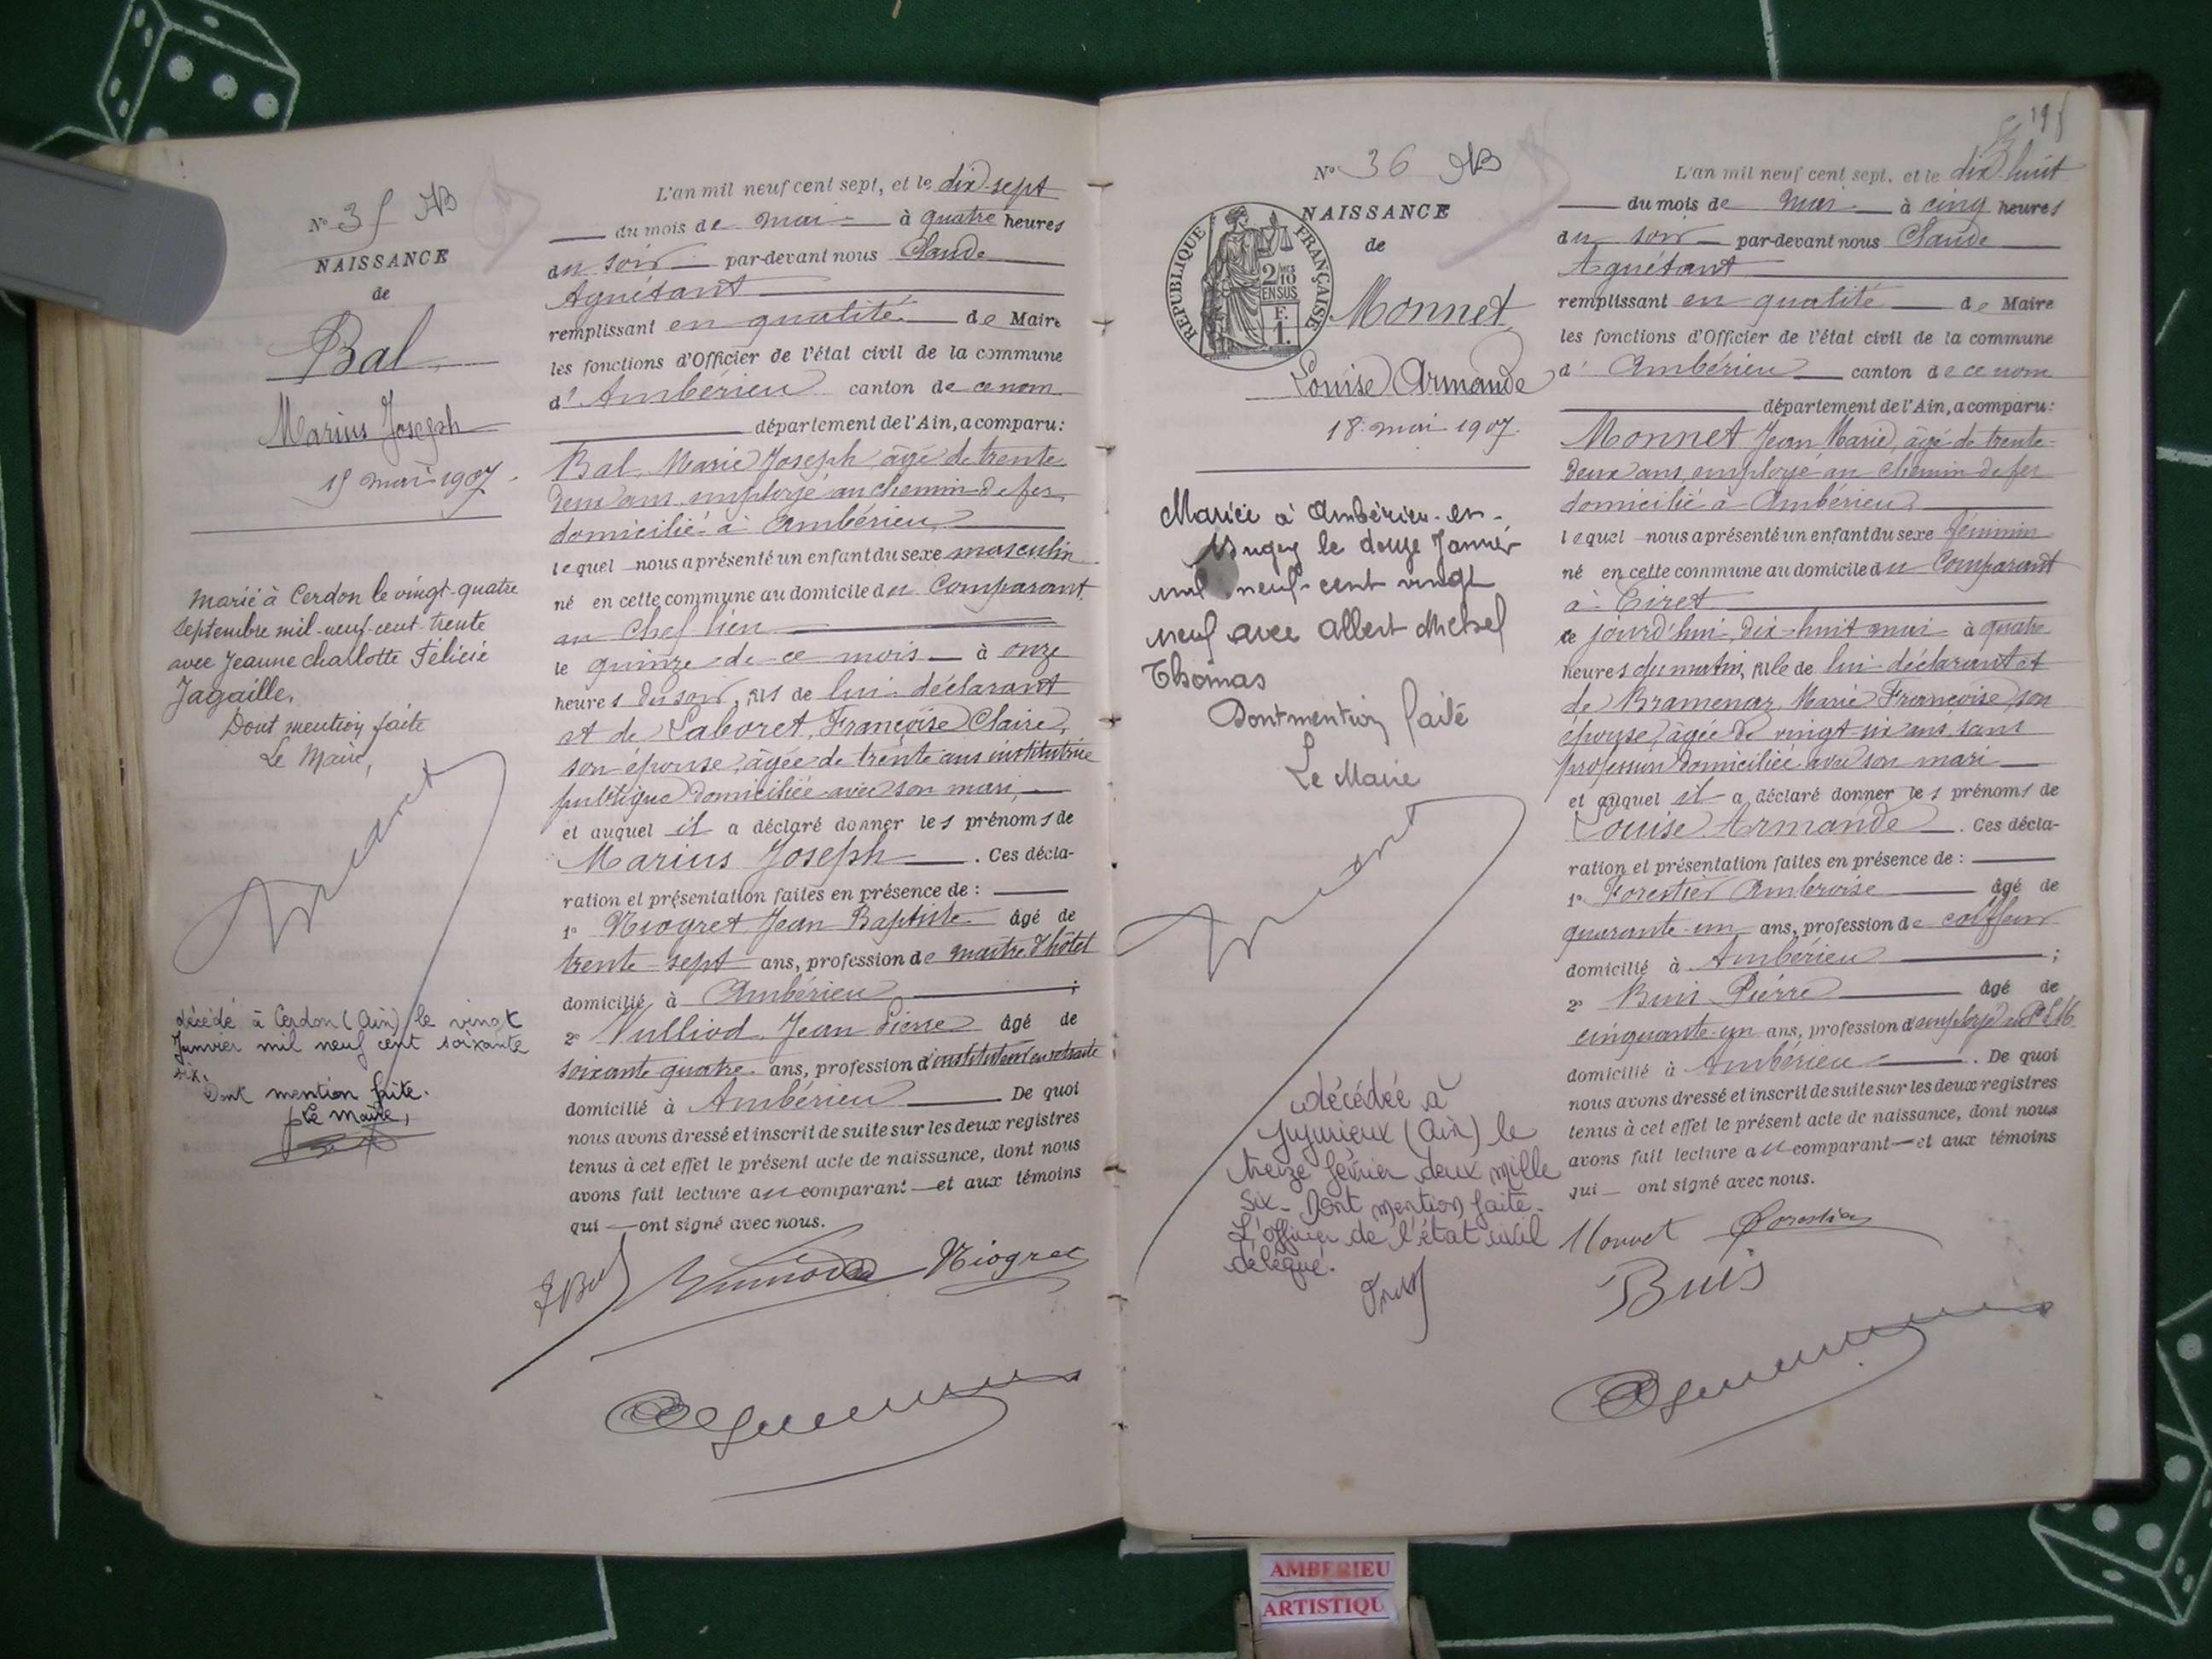 N° 35 AB
NAISSANCE
de
Bal
Marius Joseph
15 mai 1907.
Marié à Cerdon le vingt-quatre
septembre mil-neuf-cent-trente
avec Jeanne Charlotte Félicie
Jagaille.
Dont mention faite
Le Maire,
décédé à Cerdon (Ain) le vingt
Janvier mil neuf cent soixante
six.
Dont mention faite.
p Le Maire,
L'an mil neuf cent sept, et le dix-sept
du mois de mai à quatre heures
du soir par-devant nous Claude
Aguétant
remplissant en qualité de Maire
les fonctions d'Officier de l'état civil de la commune
d'Ambérieu canton de ce nom
département de l'Ain, a comparu:
Bal Marie Joseph âgé de trente
deux ans employé au chemin de fer
domicilié à Ambérieu
lequel nous a présenté un enfant du sexe masculin
né en cette commune au domicile du Comparant
au Chef lieu
le quinze de ce mois à onze
heures du soir, fils de lui déclarant
et de Laboret, Françoise Claire,
son épouse, âgée de trente ans institutrice
publique domiciliée avec son mari,
et auquel il a déclaré donner les prénoms de
Marius Joseph. Ces décla-
ration et présentation faites en présence de :
1° Niogret Jean Baptiste âgé de
trente-sept ans, profession de maître d'hôtel
domicilié à Ambérieu ;
2° Vulliod Jean Pierre âgé de
soixante quatre ans, profession d'instituteur en retraite
domicilié à Ambérieu De quoi
nous avons dressé et inscrit de suite sur les deux registres
tenus à cet effet le présent acte de naissance, dont nous
avons fait lecture au comparant et aux témoins
qui ont signé avec nous.
JBal Vulliod Niogret
N° 36 AB
NAISSANCE
de
RÉPUBLIQUE FRANÇAISE
2/10 EN SUS
F. 1.
Monnet
Louise Armande
18 mai 1907.
Mariée à Ambérieu-en-
Bugey le douze Janvier
mil neuf-cent vingt
neuf avec Albert Michel
Thomas
Dont mention faite
Le Maire
décédée à
Jujurieux (Ain) le
treize février deux mille
six. Dont mention faite.
L'officier de l'état civil
délégué.
195
L'an mil neuf cent sept, et le dix huit
du mois de mai à cinq heures
du soir par-devant nous Claude
Aguétant
remplissant en qualité de Maire
les fonctions d'Officier de l'état civil de la commune
d'Ambérieu canton de ce nom
département de l'Ain, a comparu:
Monnet Jean Marie, âgé de trente-
deux ans, employé au chemin de fer
domicilié à Ambérieu
lequel nous a présenté un enfant du sexe féminin
né en cette commune au domicile du Comparant
à Tiret
ce jourd'hui dix-huit mai à quatre
heures du matin, fille de lui déclarant et
de Bramenar Marie Françoise son
épouse, âgée de vingt-six ans, sans
profession domiciliée avec son mari
et auquel il a déclaré donner les prénoms de
Louise Armande. Ces décla-
ration et présentation faites en présence de :
1° Forestier Ambroise âgé de
quarante-un ans, profession de coiffeur
domicilié à Ambérieu ;
2° Buis Pierre âgé de
cinquante-un ans, profession d'employé
domicilié à Ambérieu. De quoi
nous avons dressé et inscrit de suite sur les deux registres
tenus à cet effet le présent acte de naissance, dont nous
avons fait lecture au comparant et aux témoins
qui ont signé avec nous.
Monnet Forestier
Buis
AMBERIEU
ARTISTIQU